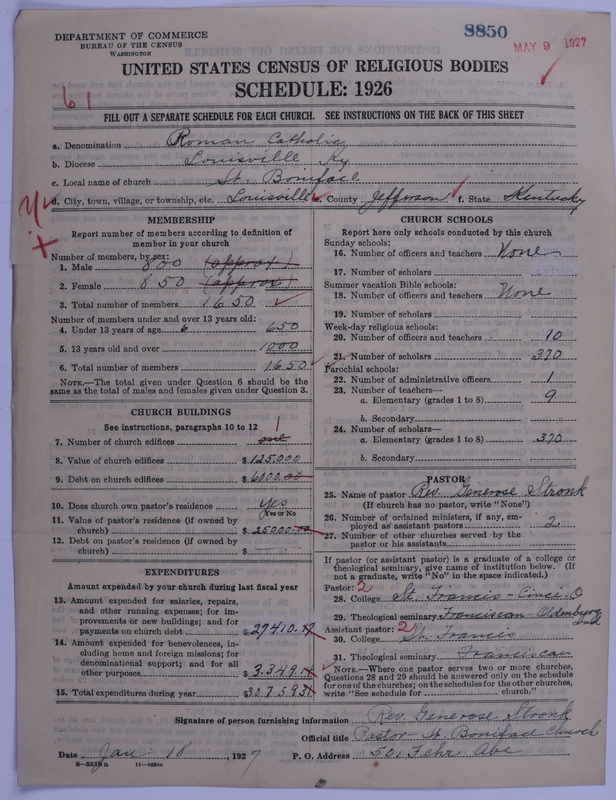 DEPARTMENT OF COMMERCE
BUREAU OF THE CENSUS
WASHINGTON
8850
MAY 9 1927
UNITED STATES CENSUS OF RELIGIOUS BODIES
SCHEDULE: 1926
61
FILL OUT A SEPARATE SCHEDULE FOR EACH CHURCH. SEE INSTRUCTIONS ON THE BACK OF THIS SHEET
a. Denomination Roman Catholic
b. Diocese Louisville Ky
c. Local name of church St. Boniface
d. City, town, village, or township, etc. Louisville e. County Jefferson f. State Kentucky
MEMBERSHIP
Report number of members according to definition of
member in your church
Number of members, by sex:
1. Male 800 (approx)
2. Female 850 (approx)
3. Total number of members 1650
Number of members under and over 13 years old:
4. Under 13 years of age 650
5. 13 years old and over 1000
6. Total number of members 1650
NOTE.—The total given under Question 6 should be
the same as the total of males and females given under Question 3.
CHURCH BUILDINGS
See instructions, paragraphs 10 to 12
1
7. Number of church edifices one
8. Value of church edifices $125.000
9. Debt on church edifices $6000.00
10. Does church own pastor's residence? yes
(Yes or No)
11. Value of pastor's residence (if owned by
church) $25000.00
12. Debt on pastor's residence (if owned by
church) $
EXPENDITURES
Amount expended by your church during last fiscal year
13. Amount expended for salaries, repairs,
and other running expenses; for im-
provements or new buildings; and for
payments on church debt $27410.17
14. Amount expended for benevolences, in-
cluding home and foreign missions; for
denominational support; and for all
other purposes $3.349.14
15. Total expenditures during year $30759.31
CHURCH SCHOOLS
Report here only schools conducted by this church
Sunday schools:
16. Number of officers and teachers None
17. Number of scholars
Summer vacation Bible schools:
18. Number of officers and teachers None
19. Number of scholars
Week-day religious schools:
20. Number of officers and teachers 10
21. Number of scholars 370
Parochial schools:
22. Number of administrative officers 1
23. Number of teachers—
a. Elementary (grades 1 to 8) 9
b. Secondary
24. Number of scholars—
a. Elementary (grades 1 to 8) 370
b. Secondary
PASTOR
25. Name of pastor Rev. Generose Stronk
(If church has no pastor, write "None")
26. Number of ordained ministers, if any, em-
ployed as assistant pastors 2
27. Number of other churches served by the
pastor or his assistants
If pastor (or assistant pastor) is a graduate of a college or
theological seminary, give name of institution below. (If
not a graduate, write "No" in the space indicated.)
Pastor: 2
28. College St. Francis - Cinci. O
29. Theological seminary Franciscan - Oldenburg Ind
Assistant pastor: 2
30. College St. Francis
31. Theological seminary Franciscan
NOTE.—Where one pastor serves two or more churches,
Questions 28 and 29 should be answered only on the schedule
for one of the churches; on the schedules for the other churches,
write "See schedule for church."
Signature of person furnishing information Rev. Generose Stronk
Official title Pastor - St. Boniface Church
Date Jan 18, 1927 P. O. Address 501 Fehr Ave
8—5518a 11—9051a